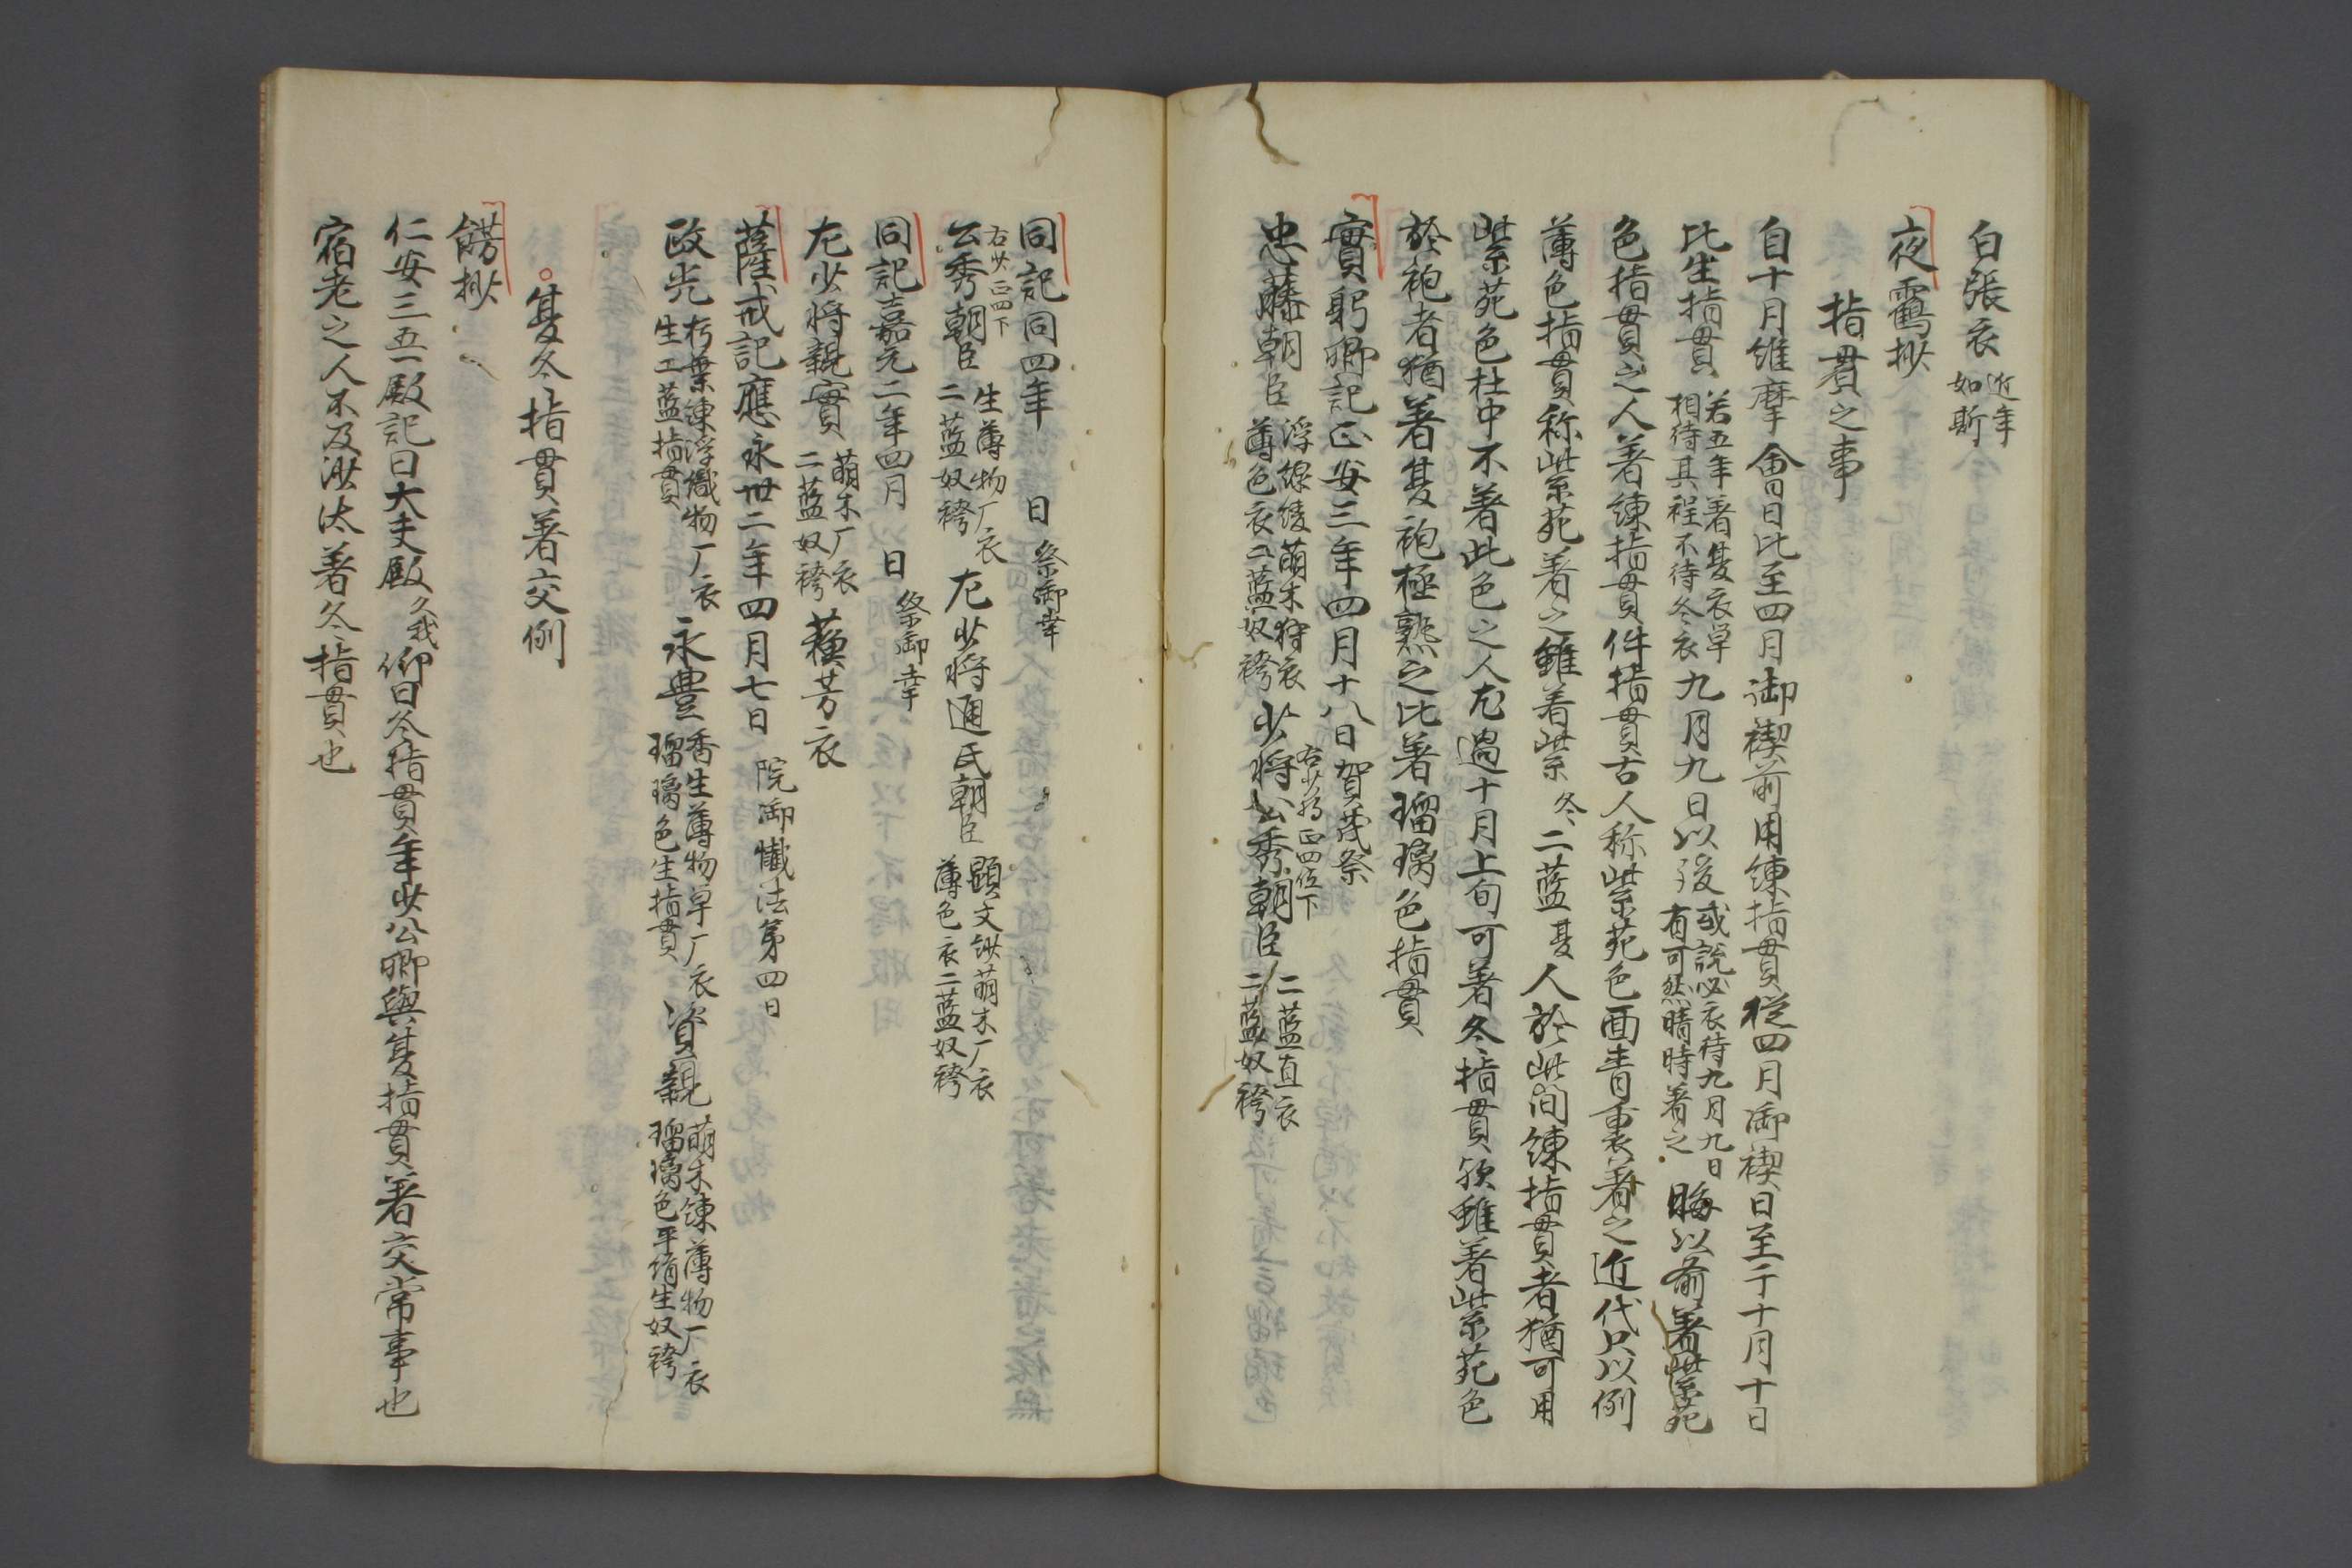 白張衣 近年如斯
夜鶴抄
指貫之事
自十月維摩會日比至四月御禊前用練指貫従四月御禊日至于十月十日
比生指貫 若五年著夏衣早相待其程不待冬衣 九月九日以後 或説必衣待九月九日有可然晴時着之 晦以前著紫苑
色指貫之人著練指貫件指貫古人称紫苑色面青裏著之近代只以例
薄色指貫称紫苑着之雖着紫 冬 二藍 夏 人於此间練指貫者猶可用
紫苑色杜中不著此色之人尤過十月上旬可著冬指貫須雖著紫苑色
於袍者猶著夏袍極熟之比著瑠璃色指貫
實躬卿記正安三年四月十八日賀茂祭
忠藤朝臣 浮線綾萌木狩衣薄色衣二藍奴袴 少将公秀朝臣 右少将正四位下 二藍直衣二藍奴袴
同記同四年 日 祭御幸
公秀朝臣 右少正四下 生薄物厂衣二藍奴袴 左少将通氏朝臣 顕文紗萌木厂衣薄色衣二藍奴袴
同記嘉元二年四月 日 祭御幸
左少将親實 萌木厂衣二藍奴袴 蘓芳衣
薩戒記應永卅二年四月七日 院御懺法第四日
政光 朽葉練浮織物厂衣生二藍指貫 永豊 香生薄物早厂衣瑠璃色生指貫 資親 萌木練薄物厂衣瑠璃色平絹生奴袴
夏冬指貫著交例
餝抄
仁安三五一殿記曰大夫殿 久我 仰曰冬指貫年少公卿與夏指貫著交常事也
宿老之人不及沙汰著冬指貫也